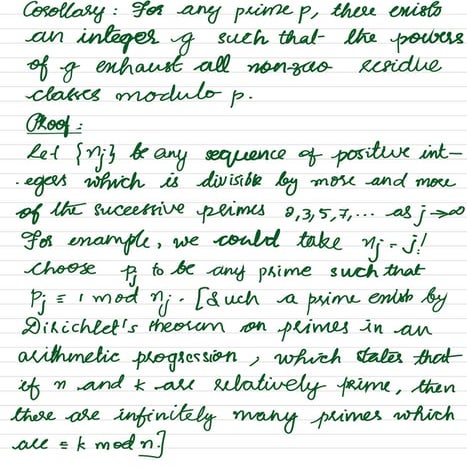 Corollary : For any prime p, there exists
an integer g such that the powers
of g exhaust all non-zero residue
classes modulo p.
Proof :
Let {nj} be any sequence of positive int-
-egers which is divisible by more and more
of the successive primes 2,3,5,7,... as j→∞
For example, we could take nj = j!
choose pj to be any prime such that
Pj ≡ 1 mod nj. [Such a prime exists by
Dirichlet's theorem on primes in an
arithmetic progression, which states that
if n and k are relatively prime, then
there are infinitely many primes which
are ≡ k mod n.]